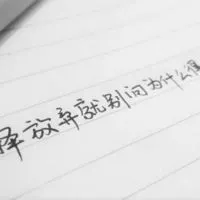 择放弃就别问为什么很